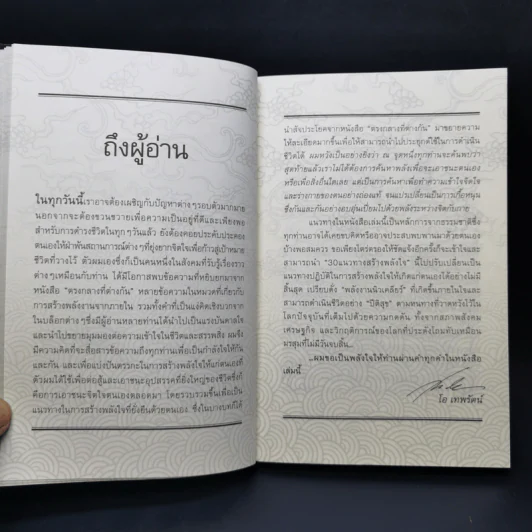 ถึงผู้อ่าน
ในทุกวันนี้เราอาจต้องเผชิญกับปัญหาต่างๆรอบตัวมากมาย
นอกจากจะต้องขวนขวายเพื่อความเป็นอยู่ที่ดีและเพียงพอ
สำหรับการดำรงชีวิตในทุกๆวันแล้ว ยังต้องคอยประคับประคอง
ตนเองให้ฝ่าฟันสถานการณ์ต่างๆ ที่ยุ่งยากจิตใจเพื่อก้าวสู่เป้าหมาย
ชีวิตที่วางไว้ ตัวผมเองซึ่งก็เป็นคนหนึ่งในสังคมที่รับรู้เรื่องราว
ต่างๆเหมือนกับท่าน ได้มีโอกาสพบข้อความที่หยิบยกมาจาก
หนังสือ "ตรงกลางที่ต่างกัน" หลายข้อความในหมวดที่เกี่ยวกับ
การสร้างพลังงานจากภายใน รวมทั้งคำที่เป็นแง่คิดเชิงบวกจาก
ในบล็อกต่าง ๆซึ่งมีผู้อ่านหลายท่านได้นำไปเป็นแรงบันดาลใจ
และนำไปขยายมุมมองต่อความเข้าใจในชีวิตและสรรพสิ่ง ผมจึง
มีความคิดที่จะสื่อสารข้อความถึงทุกท่านเพื่อเป็นกำลังใจให้กัน
และกัน และเพื่อแบ่งปันตรรกะในการสร้างพลังใจให้แก่ตนเองที่
ตัวผมได้ใช้เพื่อต่อสู้และเอาชนะอุปสรรคที่ยิ่งใหญ่ของชีวิตซึ่งก็
คือการเอาชนะจิตใจตนเองตลอดมา โดยรวบรวมขึ้นเพื่อเป็น
แนวทางในการสร้างพลังใจที่ยั่งยืนด้วยตนเอง ซึ่งในบางบทก็ได้
นำสิ่งประโยคจากหนังสือ "ตรงกลางที่ต่างกัน" มาขยายความ
ให้ละเอียดมากขึ้นเพื่อให้สามารถนำไปประยุกต์ใช้ในการดำเนิน
ชีวิตได้ ผมหวังเป็นอย่างยิ่งว่า ณ จุดหนึ่งทุกท่านจะค้นพบว่า
สุดท้ายแล้วเราไม่ได้ต้องการค้นหาพลังเพื่อจะเอาชนะตนเอง
หรือเพื่อสิ่งอื่นใดเลย แต่เป็นการค้นหาเพื่อทำความเข้าใจจิตใจ
และร่างกายของตนอย่างถ่องแท้ จนแปรเปลี่ยนเป็นการเกื้อหนุน
ซึ่งกันและกันอย่างอบอุ่นเปี่ยมไปด้วยพลังระหว่างจิตกับกาย
แนวทางในหนังสือเล่มนี้เป็นหลักการจากธรรมชาติซึ่ง
ทุกท่านอาจได้เคยขบคิดหรืออาจประสบพบพานมาด้วยตนเอง
บ้างพอสมควร ขอเพียงไตร่ตรองให้ชัดแจ้งอีกครั้งก็จะเข้าใจและ
สามารถนำ "30แนวทางสร้างพลังใจ" นี้ไปปรับเปลี่ยนเป็น
แนวทางปฏิบัติในการสร้างพลังใจให้เกิดแก่ตนเองได้อย่างไม่มี
สิ้นสุด เปรียบดั่ง "พลังงานนิวเคลียร์" ที่เกิดขึ้นภายในใจและ
สามารถดำเนินชีวิตอย่าง "ปีติสุข" ตามหนทางที่วาดหวังไว้ใน
โลกปัจจุบันที่เต็มไปด้วยความกดดัน ทั้งจากสภาพสังคม
เศรษฐกิจ และวิกฤติการณ์ของโลกที่ประดังโถมทับเหมือน
มรสุมที่ไม่มีวันจบสิ้น...
...ผมขอเป็นพลังใจให้ท่านผ่านคำทุกคำในหนังสือ
เล่มนี้
โอ เทพรัตน์